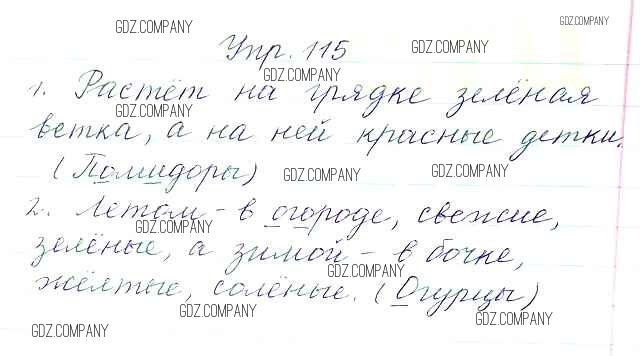 GDZ.COMPANY
GDZ.COMPANY
Упр. 115
GDZ.COMPANY
GDZ.COMPANY
1. Растёт на грядке зелёная
GDZ.COMPANY
ветка, а на ней красные детки.
(Помидоры)
GDZ.COMPANY
GDZ.COMPANY
2. Летом - в огороде, свежие,
GDZ.COMPANY
зелёные, а зимой - в бочке,
GDZ.COMPANY
жёлтые, солёные. (Огурцы)
GDZ.COMPANY
GDZ.COMPANY
GDZ.COMPANY